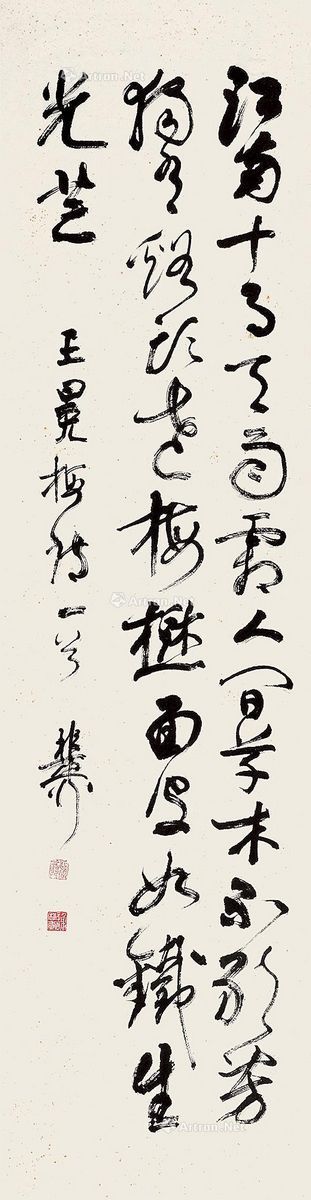 江南十月天雨霜人間草木不敢芳
獨有谿頭老梅樹面皮如鐵生
光芒
王冕梅詩一首
Artron.Net